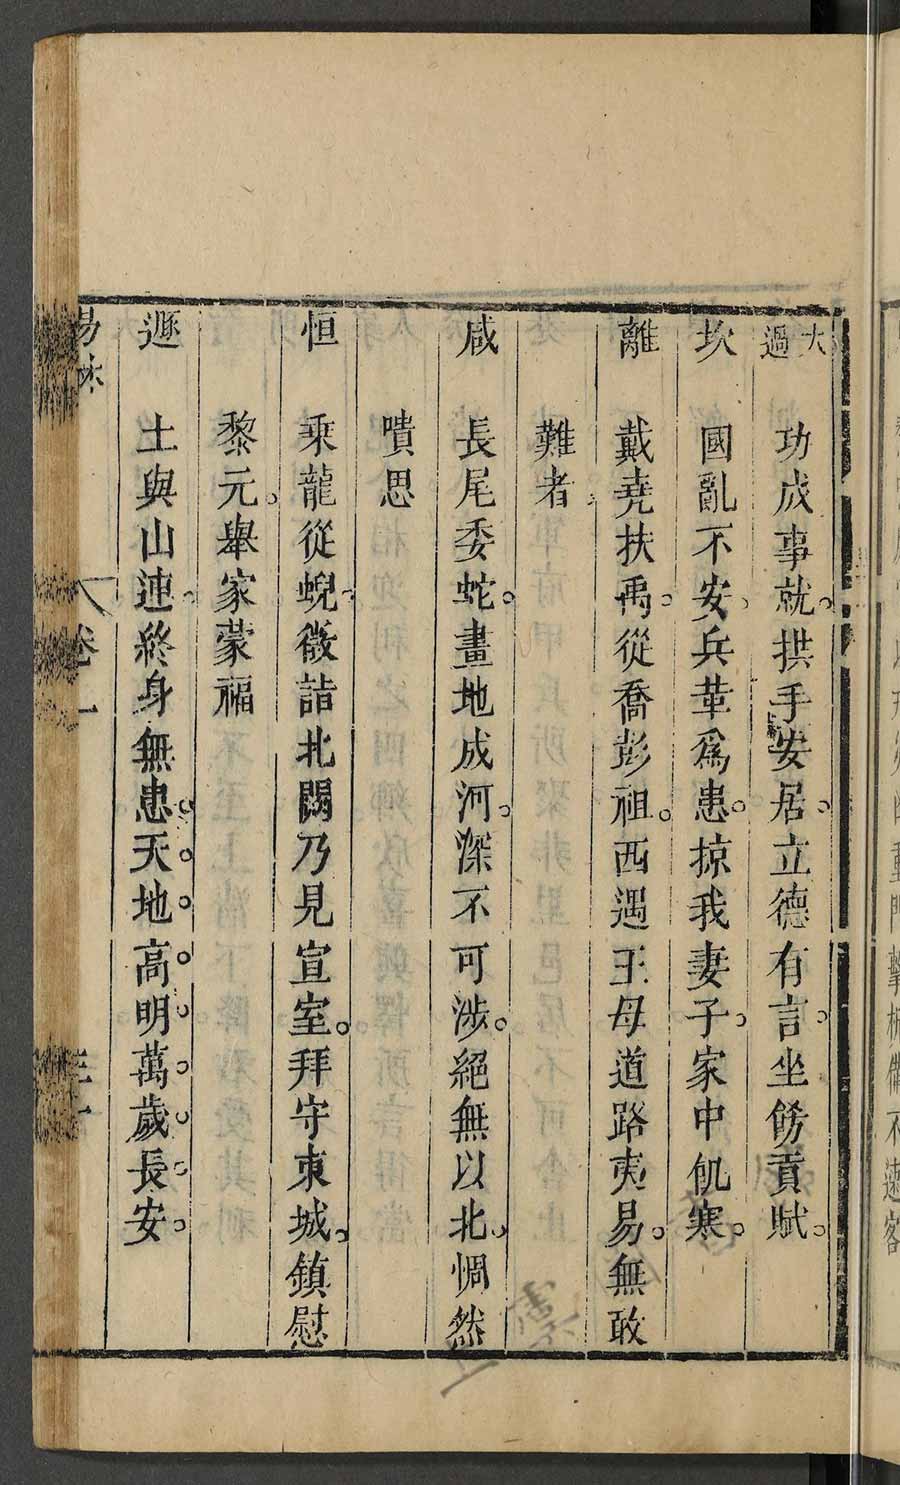 大過　功成事就。拱手安居。立德有言。坐飭貢賦。
坎　國亂不安。兵革爲患。掠我妻子。家中飢寒。
離　戴堯扶禹。從喬彭祖。西遇王母道路夷易。無敢
難者
咸　長尾委蛇。畫地成河。深不可涉。絕無以北。惆然
嘳思
恒　乘龍從蜺。徵詣北闕乃見宣室。拜守東城。鎮慰
黎元。舉家蒙福
遯　土與山連。終身無患。天。地。高。明。萬。歲。長。安。
易林
卷一